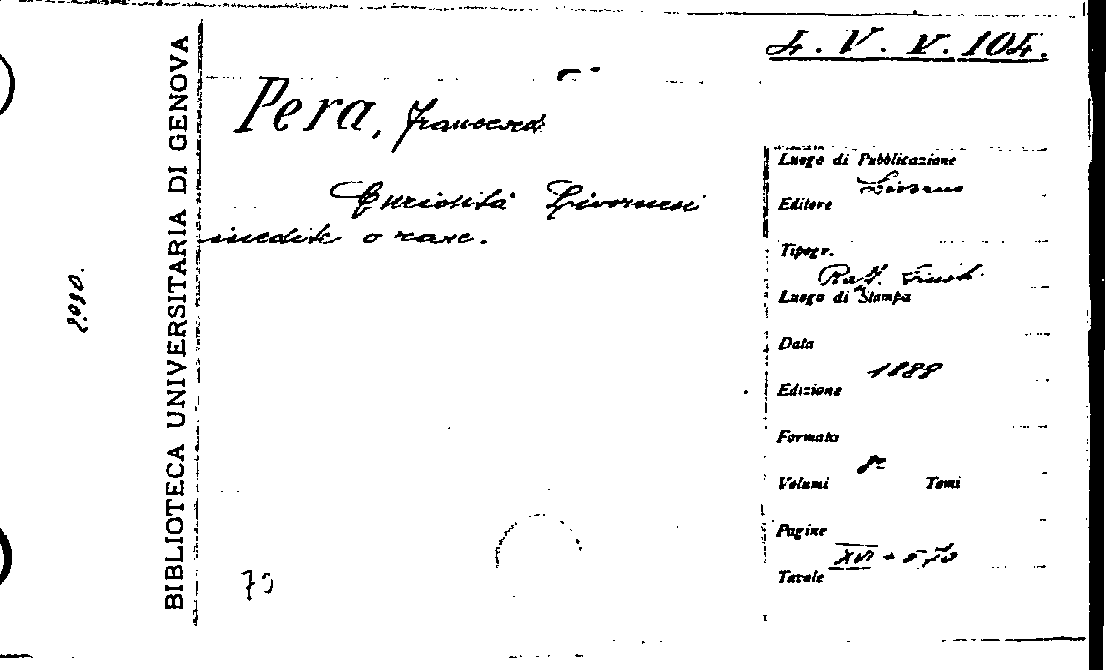 4. V. V. 104.
Pera, Francesco
Curiosità Livornesi
inedite o rare.
Luogo di Pubblicazione
Livorno
Editore
Tipogr.
Raf. Giusti
Luogo di Stampa
Data
1888
Edizione
Formato
8º
Volumi Tomi
Pagine
XVI + 570
Tavole
BIBLIOTECA UNIVERSITARIA DI GENOVA